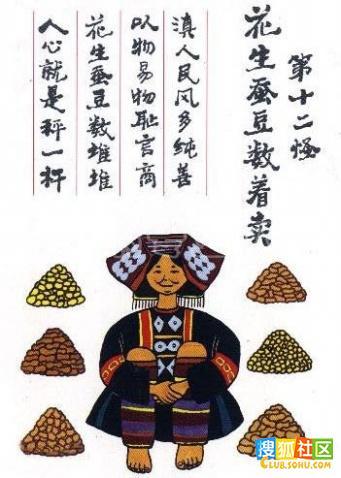 第十二怪
花生蚕豆数着卖
滇人民风多纯善
以物易物耻言商
花生蚕豆数堆堆
人心就是秤一杆
搜狐社区
CLUB.SOHU.COM